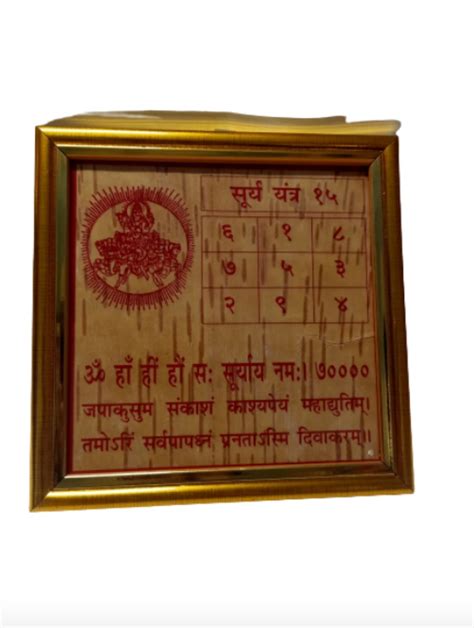 सूर्य यंत्र १५
६ १ ८
७ ५ ३
२ ९ ४
ॐ हाँ हीं हौं सः सूर्याय नमः। ७००००
जपाकुसुम संकाशं काश्यपेयं महाद्युतिम्।
तमोऽरिं सर्वपापघ्नं प्रनताऽस्मि दिवाकरम्॥